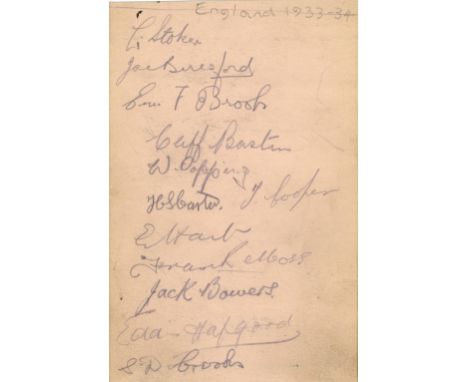 England 1933-34
L. Stoker
Joe Beresford
Eric F Brook
Cliff Bastin
W. Copping
H S Carter. T. Cooper
E Hart
Frank Moss
Jack Bowers.
Edd- Hapgood
S D Crooks